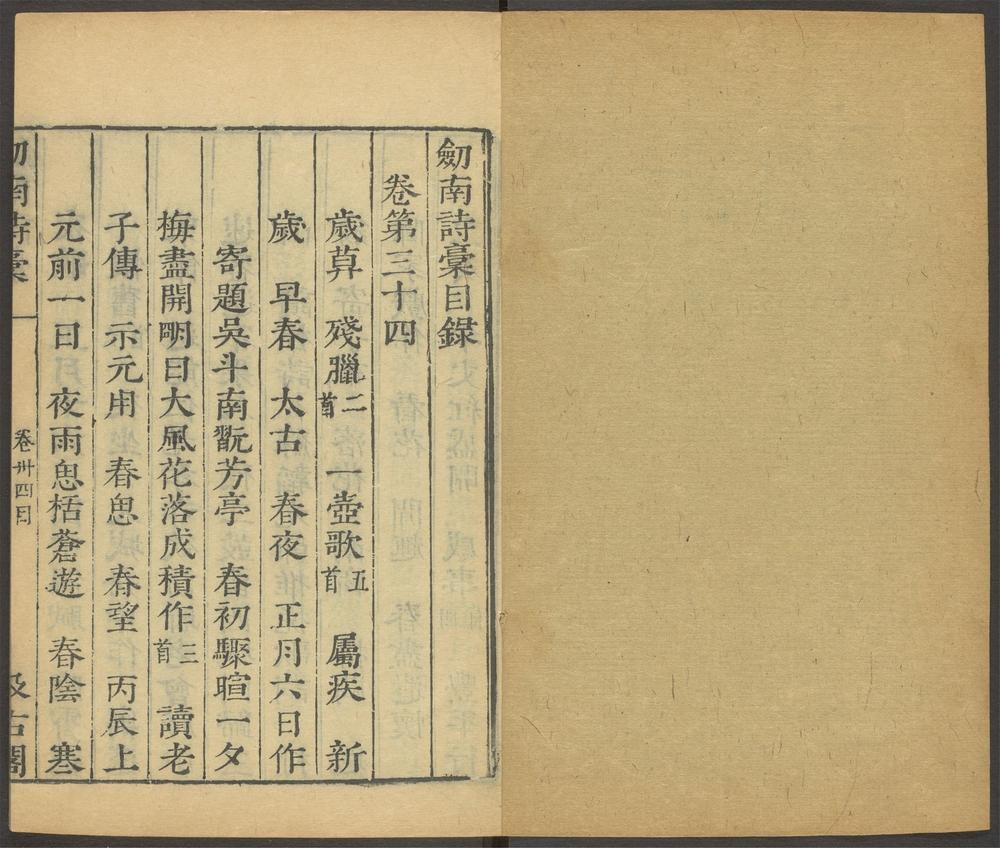 劒南詩稾目錄
卷第三十四
歲暮 殘臘二首 一壺歌五首 屬疾 新
歲 早春 太古 春夜 正月六日作
寄題吳斗南翫芳亭 春初驟暄一夕
梅盡開明日大風花落成積作三首 讀老
子傳 示元用 春思 春望 丙辰上
元前一日 夜雨思栝蒼遊 春陰 寒
劒南詩稾
卷卅四目
汲古閣